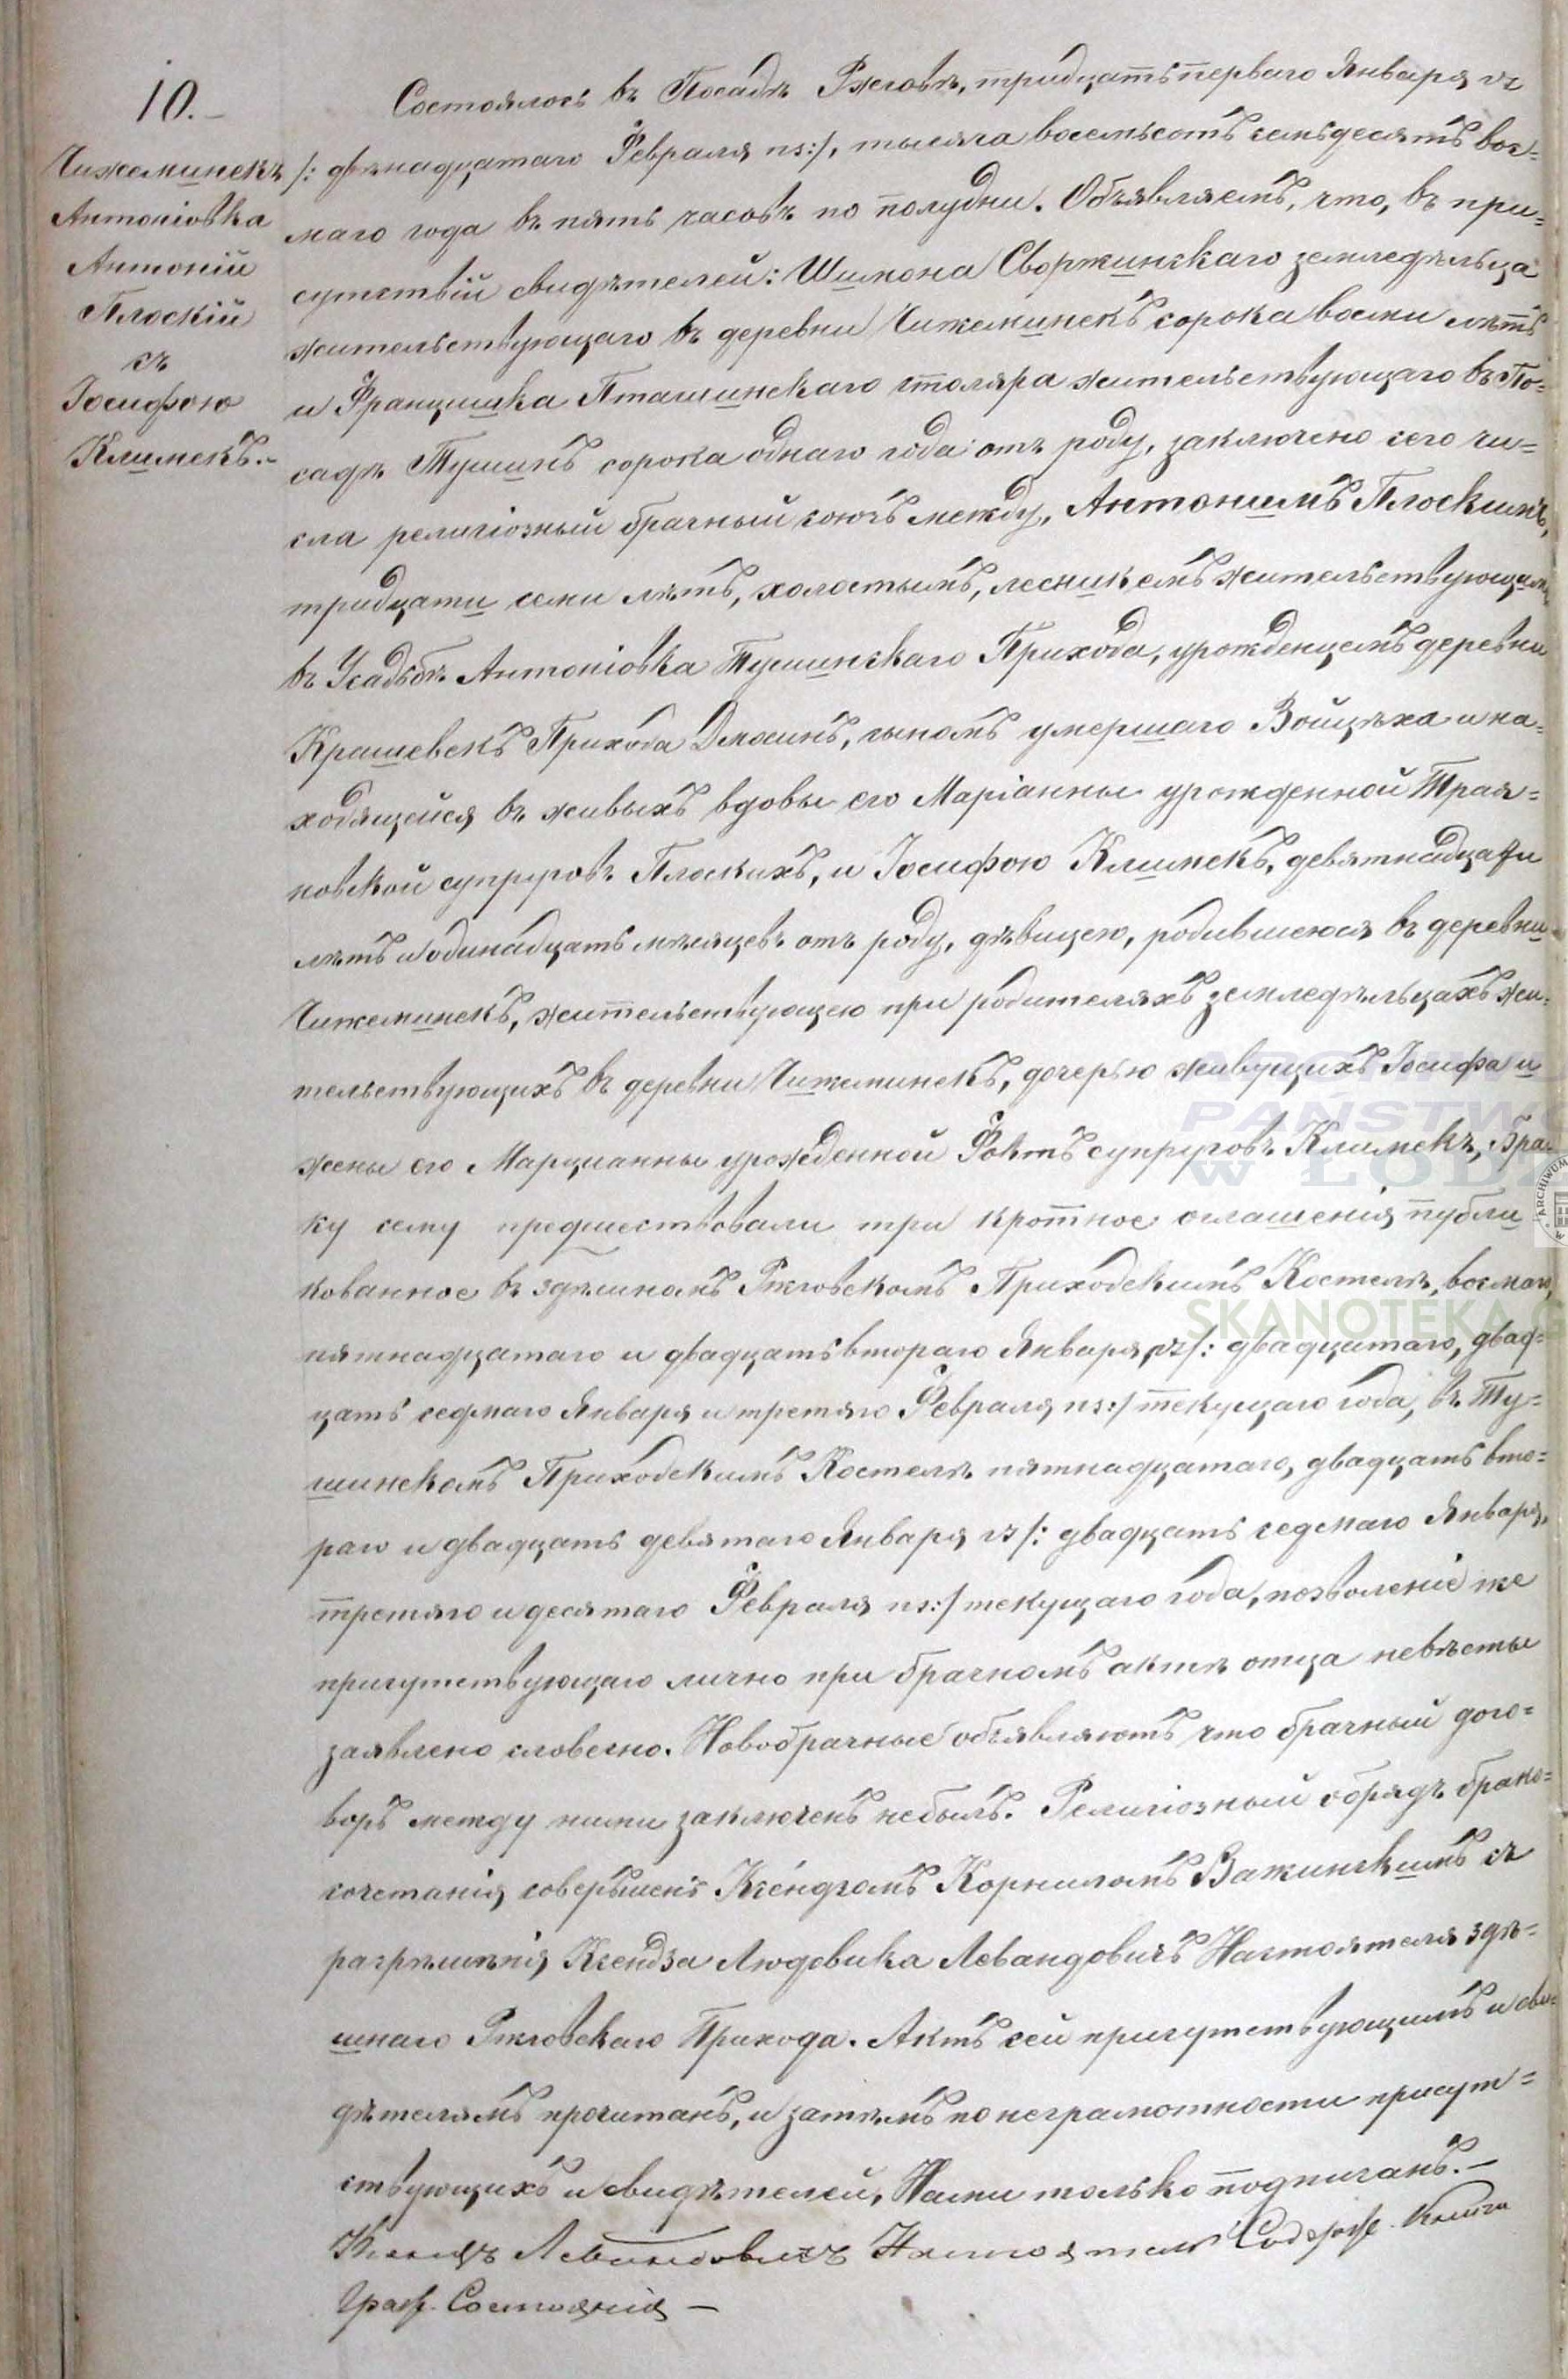 10.-
Чижеминекъ
Антоніовка
Антоній
Плоскій
съ
Іосифою
Климекъ.-
Состоялось въ Посадѣ Ржговѣ, тридцать перваго Января сs
/: двѣнадцатаго Февраля нs:/, тысяча восемьсотъ семьдесятъ вось=
маго года въ пять часовъ по полудни. Объявляемъ, что, въ при=
сутствіи свидѣтелей: Шимона Своржинскаго земледѣльца
жительствующаго въ деревни Чижеминекъ сорока восьми лѣтъ
и Францишка Пташинскаго столяра жительствующаго въ По=
садѣ Тушинъ сорока однаго года отъ роду, заключено сего чи=
сла религіозный брачный союзъ между, Антонимъ Плоскимъ,
тридцати семи лѣтъ, холостымъ, лесникемъ жительствующимъ
въ Усадьбѣ Антоніовка Тушинскаго Прихода, урожденцемъ деревни
Крашевекъ Прихода Дмосинъ, сыномъ умершаго Войцѣха и на=
ходящейся въ живыхъ вдовы его Маріанны урожденной Трая=
новской супруговъ Плоскихъ, и Іосифою Климекъ, девятнадцати
лѣтъ и одинадцать мѣсяцевъ отъ роду, дѣвицею, родившеюся въ деревни
Чижеминекъ, жительствующею при родителяхъ земледѣльцахъ жи=
тельствующихъ въ деревни Чижеминекъ, дочерью живущихъ Іосифа и
жены его Марцианны урожденной Фоктъ супруговъ Климекъ, Бра=
ку сему предшествовали три кротное оглашенія публи
кованное въ здѣшномъ Ржговскомъ Приходскимъ Костелѣ, восмаго,
пятнадцатаго и двадцать втораго Января сs/: двадцатаго, двад=
цать седмаго Января и третяго Февраля нs:/ текущаго года, въ Ту=
шинскомъ Приходскимъ Костелѣ пятнадцатаго, двадцать вто=
раго и двадцать девятаго Января сs/: двадцать седмаго Января,
третяго и десятаго Февраля нs:/ текущаго года, позволеніе же
присутствующаго лично при брачномъ актѣ отца невѣсты
заявлено словесно. Новобрачные объявляютъ что брачный дого=
воръ между ними заключенъ небылъ. Религіозный обрядъ брако=
сочетанія, совершенъ Ксёндзомъ Корниломъ Важинскимъ съ
разрѣшенія Ксендза Людовика Левандовичъ Настоятеля здѣ=
шнаго Ржговскаго Прихода. Актъ сей присутствующимъ и сви=
дѣтелямъ прочитанъ, и затѣмъ по неграмотности присут=
ствующихъ и свидѣтелей, Нами только подписанъ.-
Ксендзъ Левандовичъ Настоятель Содерж. Книги
Граж. Состоянія -
ARCHIWUM
PAŃSTWO
W ŁODZ
SKANOTEKA